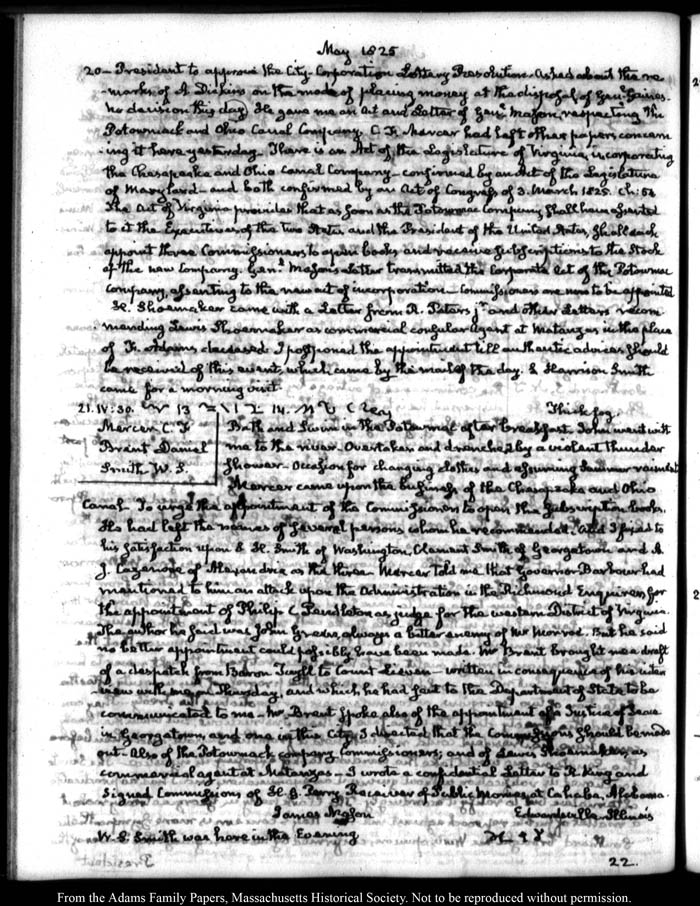 May 1825
20 – President to approve the City Corporation Lottery Resolution. Asked about the re
-marks of A Dickins on the mode of placing money at the disposal of Genl. Gaines.
No decision this day. He gave me an Act and Letter of Genl. Mason, respecting the
Potowmack and Ohio Canal Company. C. F. Mercer had left other papers concern
-ing it here yesterday. There is an Act of the Legislature of Virginia, incorporating
the Chesapeake and Ohio Canal Company – confirmed by an Act of the Legislature
of Maryland – and both confirmed by an Act of Congress of 3. March 1825. Ch: 52
The Act of Virginia provides that as soon as the Potowmac Company shall have assented
to it the Executives of the two States and the President of the United States, shall each
appoint three Commissioners to open books and receive subscriptions to the Stock
of the new Company. Genl. Mason's Letter transmitted the Corporate Act of the Potowmac
Company, assenting to the new act of incorporation – Commissioners are now to be appointed
Shoemaker came with a Letter from R. Peters Jr. and other Letters recom
-mending Lewis Shoemaker as commercial consular Agent at Matanzas in the place
of Adams deceased. I postponed the appointment till authentic advices should
be received of this event, which came by the mail of the day. S Harrison Smith
came for a morning visit.
21. IV: 30. 13 14. Clay Thick fog.
Mercer C. F Bath and Swim in the Potowmac after breakfast. John went with
Brent Daniel me to the river. Overtaken and drenched by a violent thunder
Smith W. S. shower – Occasion for changing clothes and assuming Summer raiment
Mercer came upon the business of the Chesapeake and Ohio
Canal. To urge the appointment of the Commissioners to open the Subscription books.
He had left the names of several persons whom he recommended. And I fixed to
his satisfaction upon S. H. Smith of Washington, Clement Smith of Georgetown and A.
J. Cazenove of Alexandria as the three. Mercer told me that Governor Barbour had
mentioned to him an attack upon the Administration in the Richmond Enquirer, for
the appointment of Philip C. Pendleton as judge for the western District of Virginia.
The author he said was John Green, always a bitter enemy of Mr Monroe. But he said
no better appointment could possibly have been made. Mr Brent brought me a draft
of a despatch from Baron Tuyll to Count Lieven – written in consequence of his inter
-view with me on Thursday, and which he had sent to the Department of State to be
communicated to me – Mr Brent spoke also of the appointment of a Justice of Peace
in Georgetown, and one in this City. I directed that the Commissions should be made
out – Also of the Potowmack company Commissioners; and of Lewis Shoemaker, as
commercial agent at Matanzas – I wrote a confidential Letter to R. King and
Signed Commissions of H. G. Perry, Receiver of Public Monies, at Cahaba, Alabama.
James Mason Edwardsville Illinois
W. S. Smith was here in the Evening
22.
From the Adams Family Papers, Massachusetts Historical Society. Not to be reproduced without permission.